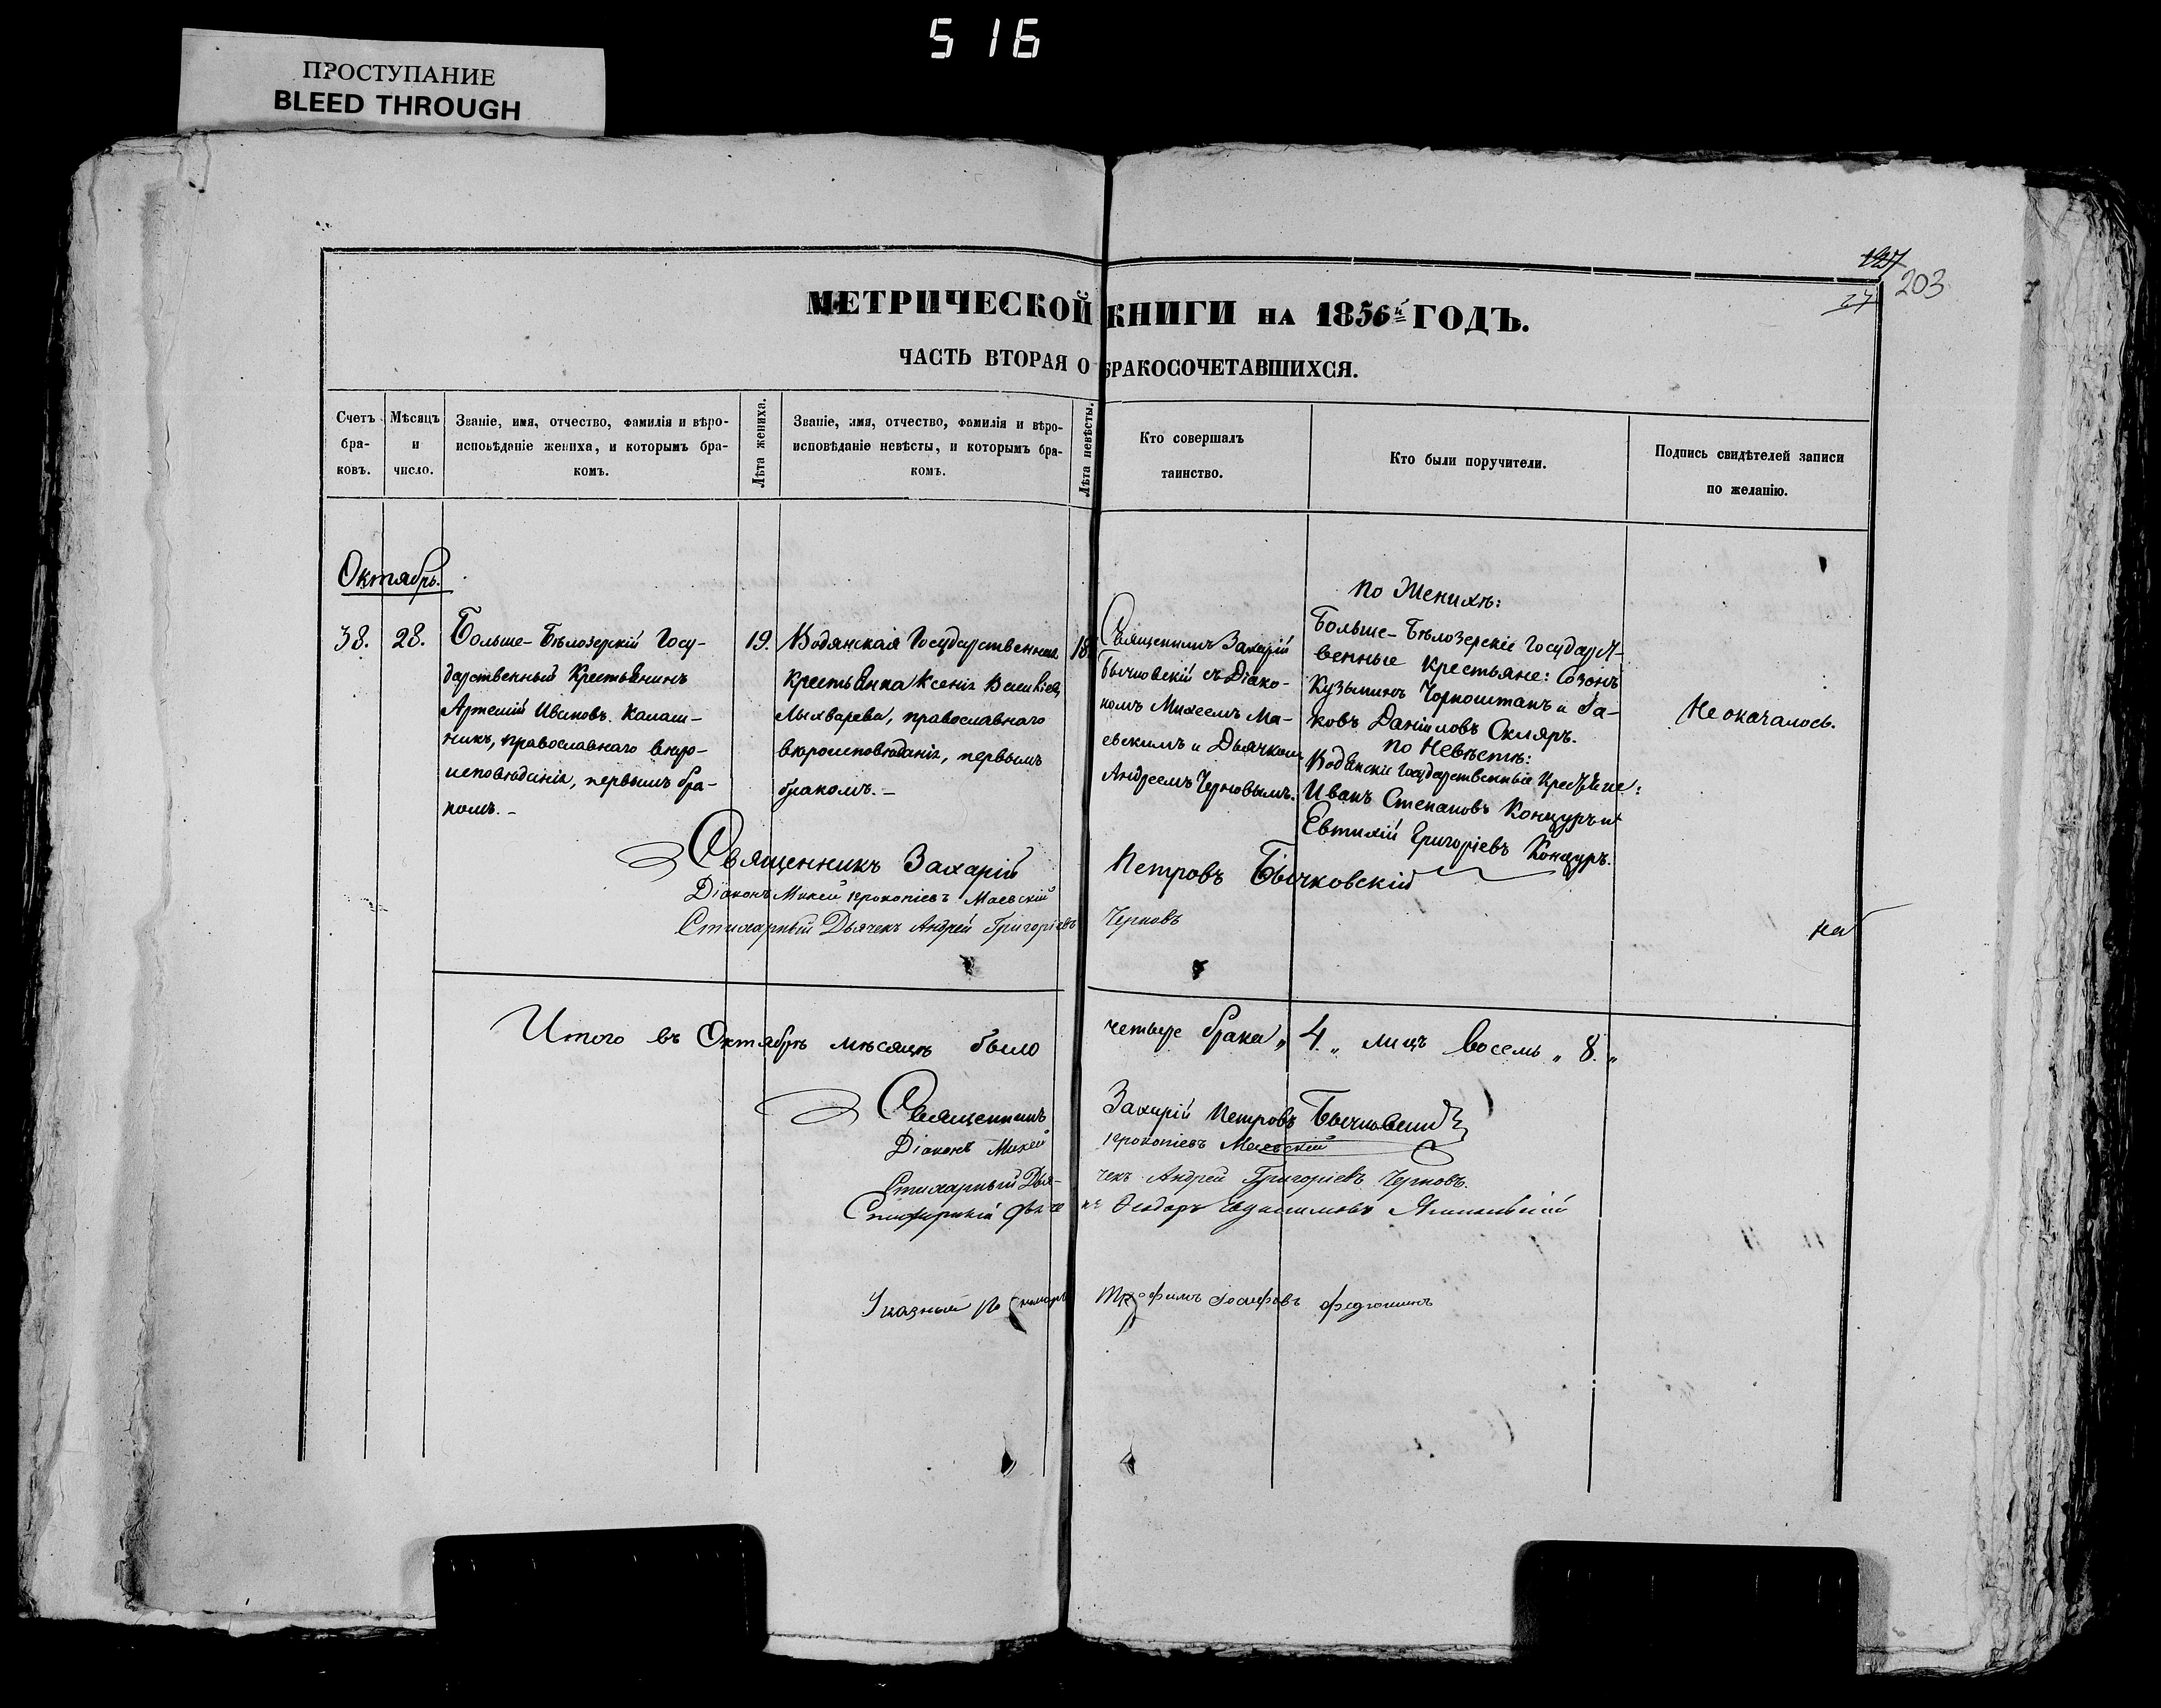 5 16
ПРОСТУПАНИЕ
BLEED THROUGH
203
27
МЕТРИЧЕСКОЙ КНИГИ НА 1856й ГОДЪ.
ЧАСТЬ ВТОРАЯ О БРАКОСОЧЕТАВШИХСЯ.
Счетъ бра-ковъ.
Мѣсяцъ и число.
Званіе, имя, отчество, фамилія и вѣро-
исповѣданіе жениха, и которымъ бра-
комъ.
Лѣта жениха.
Званіе, имя, отчество, фамилія и вѣро-
исповѣданіе невѣсты, и которымъ бра-
комъ.
Лѣта невѣсты.
Кто совершалъ
таинство.
Кто были поручители.
Подпись свидѣтелей записи
по желанію.
Октябрь.
38.
28.
Больше-Бѣлозерскій Госу-
дарственный Крестьянинъ
Артемій Ивановъ Калаш-
никъ, православнаго вѣро-
исповѣданія, первымъ бра-
комъ.-
19.
Водянская Государственная
крестьянка Ксенія
Лыхварева, православнаго
вѣроисповѣданія, первымъ
бракомъ.-
18
Священникъ Захарій
Бычковскій съ Діако-
номъ Михеемъ Ма-
евскимъ и Дьячкомъ
Андреемъ Черновымъ.
по Женихѣ:
Больше-Бѣлозерскіе Государст-
венные крестьяне: Созонъ
Кузьминъ Чорноштанъ и Іа-
ковъ Даніиловъ Скляръ.
по Невѣстѣ:
Водянскіе Государственные Крестьяне:
Иванъ Степановъ Концуръ и
Евтихій Григоріевъ Концуръ.
Не оказалось.
Священникъ Захарій Петровъ Бычковскій
Діаконъ Михей Прокопіевъ Маевскій
Стихарный Дьячекъ Андрей Григоріевъ Черновъ
На
Итого въ Октябрѣ мѣсяцѣ было четыре брака „ 4. „ лицъ восемь „ 8. „
Священникъ Захарій Петровъ Бычковскій
Діаконъ Михей Прокопіевъ Маевскій
Стихарный Дья-чекъ Андрей Григоріевъ Черновъ.
Ѳеодоръ
Указный Трофимъ Іосифовъ